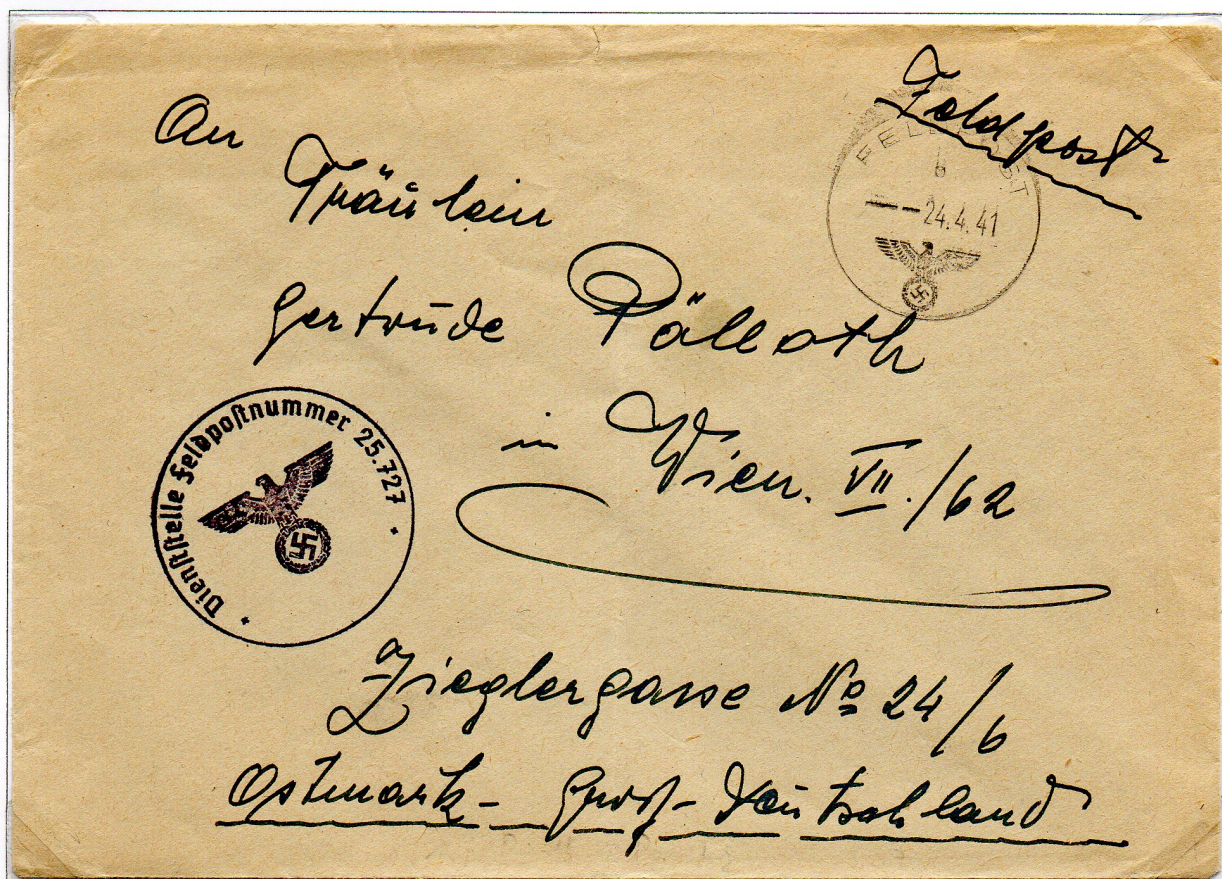 Feldpost
FELDPOST
b
24.4.41
An
Fräulein
Gertrude Pälloth
in Wien. VII./62
Dienststelle Feldpostnummer 25.727
Zieglergasse No 24/6
Ostmark - Groß-Deutschland